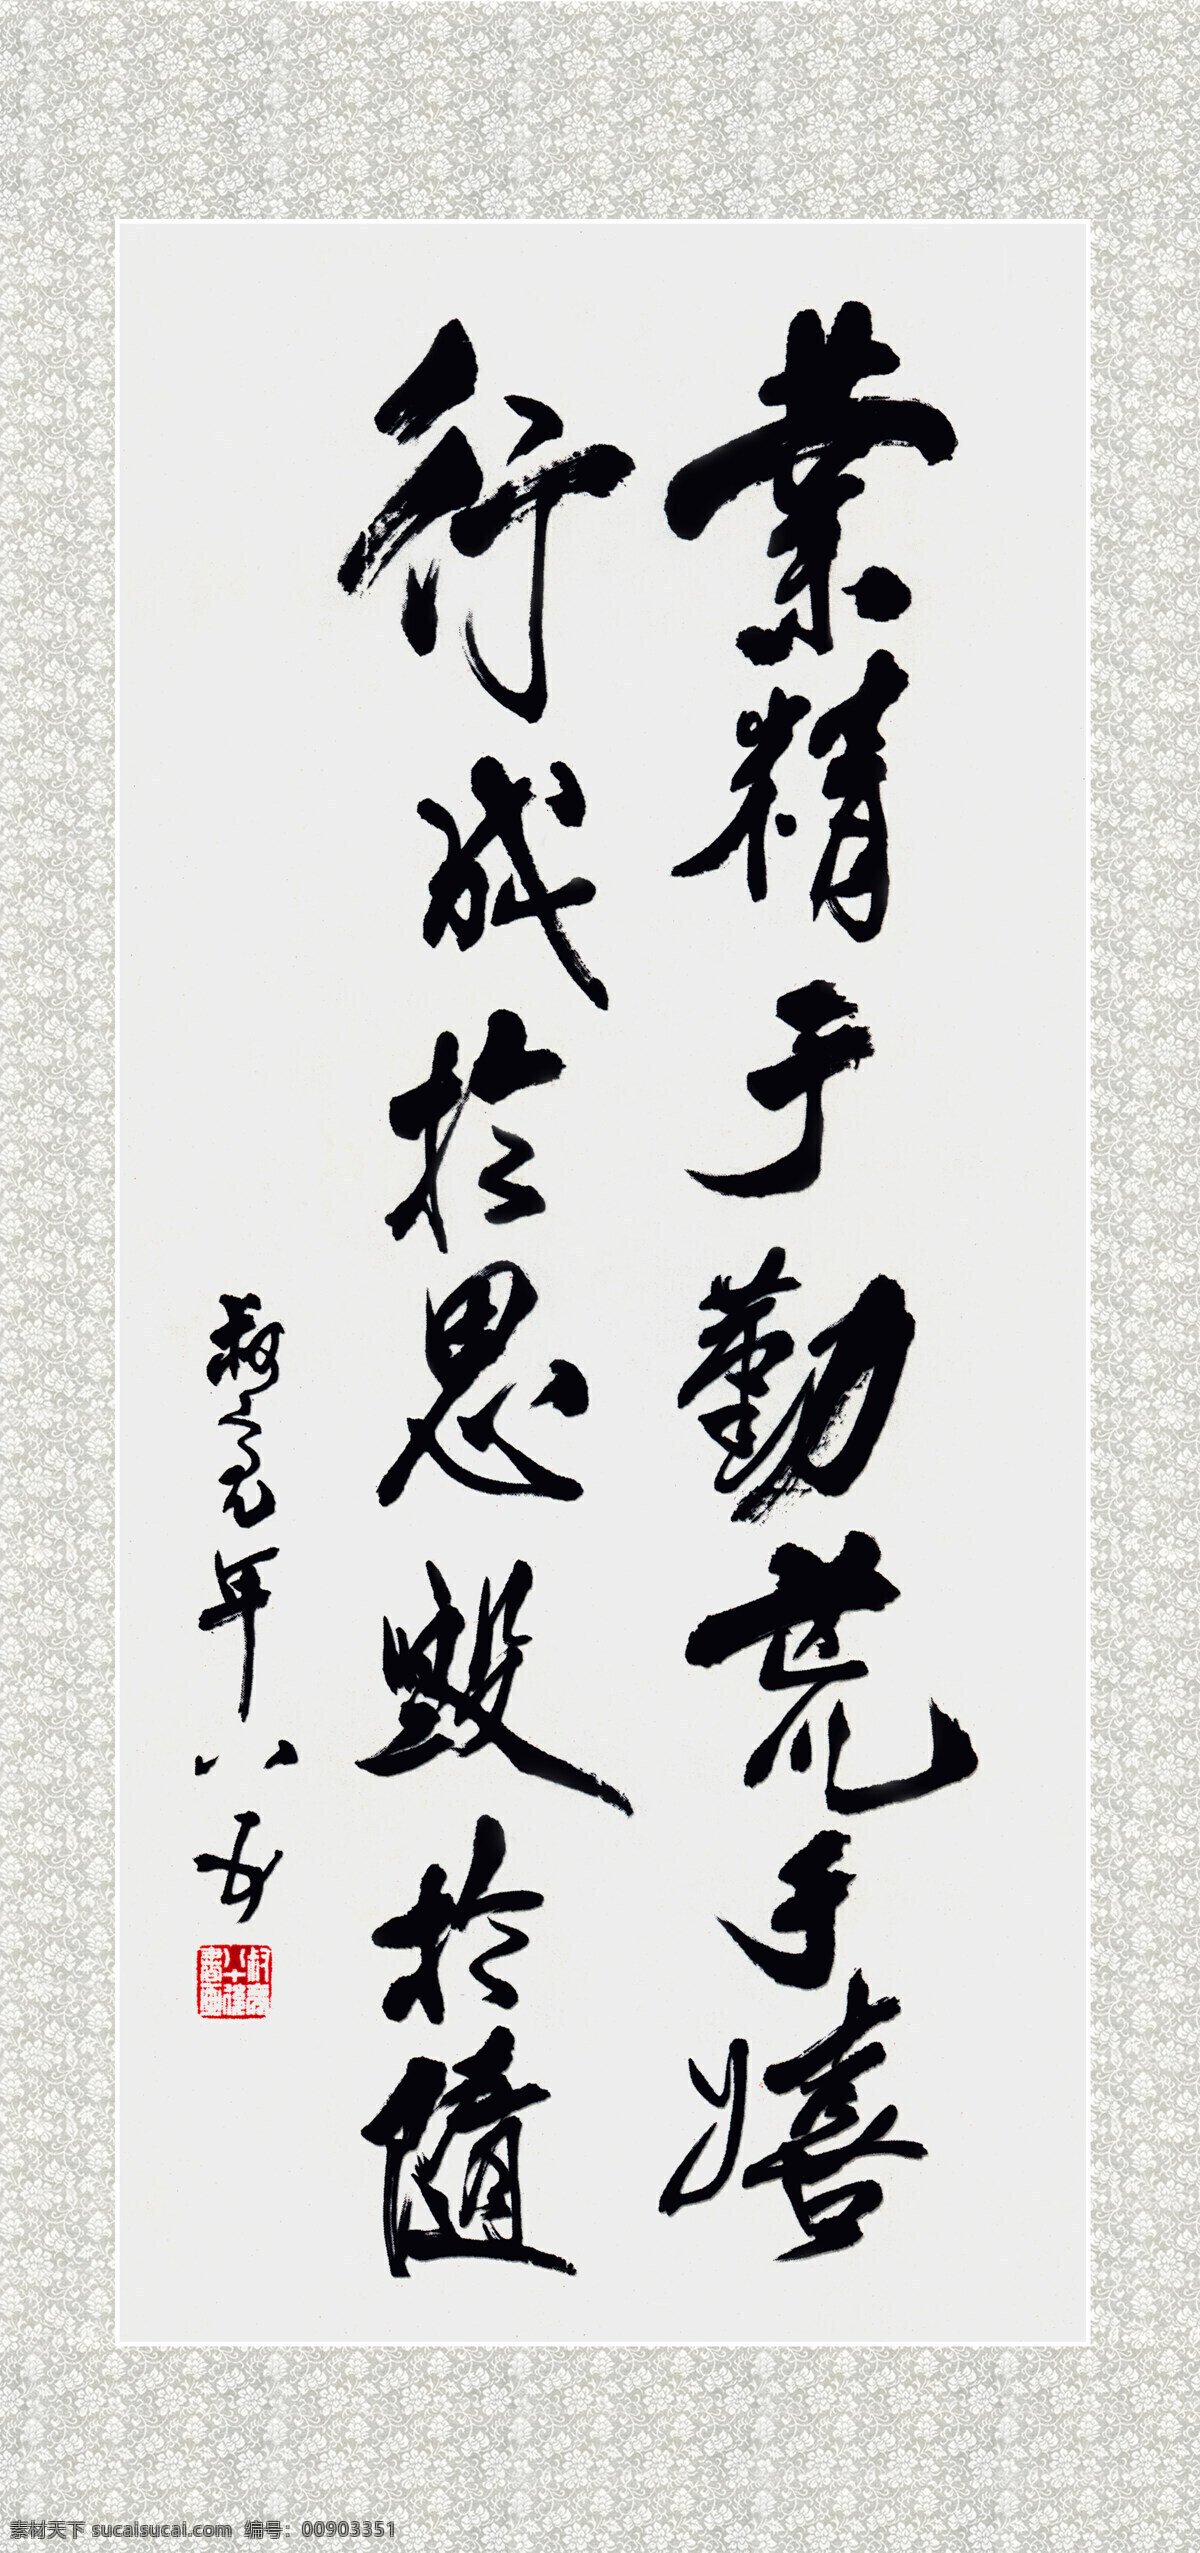 業精于勤荒于嬉
行成於思毀於隨
年八五
素材天下 sucaisucai.com 编号：00903351